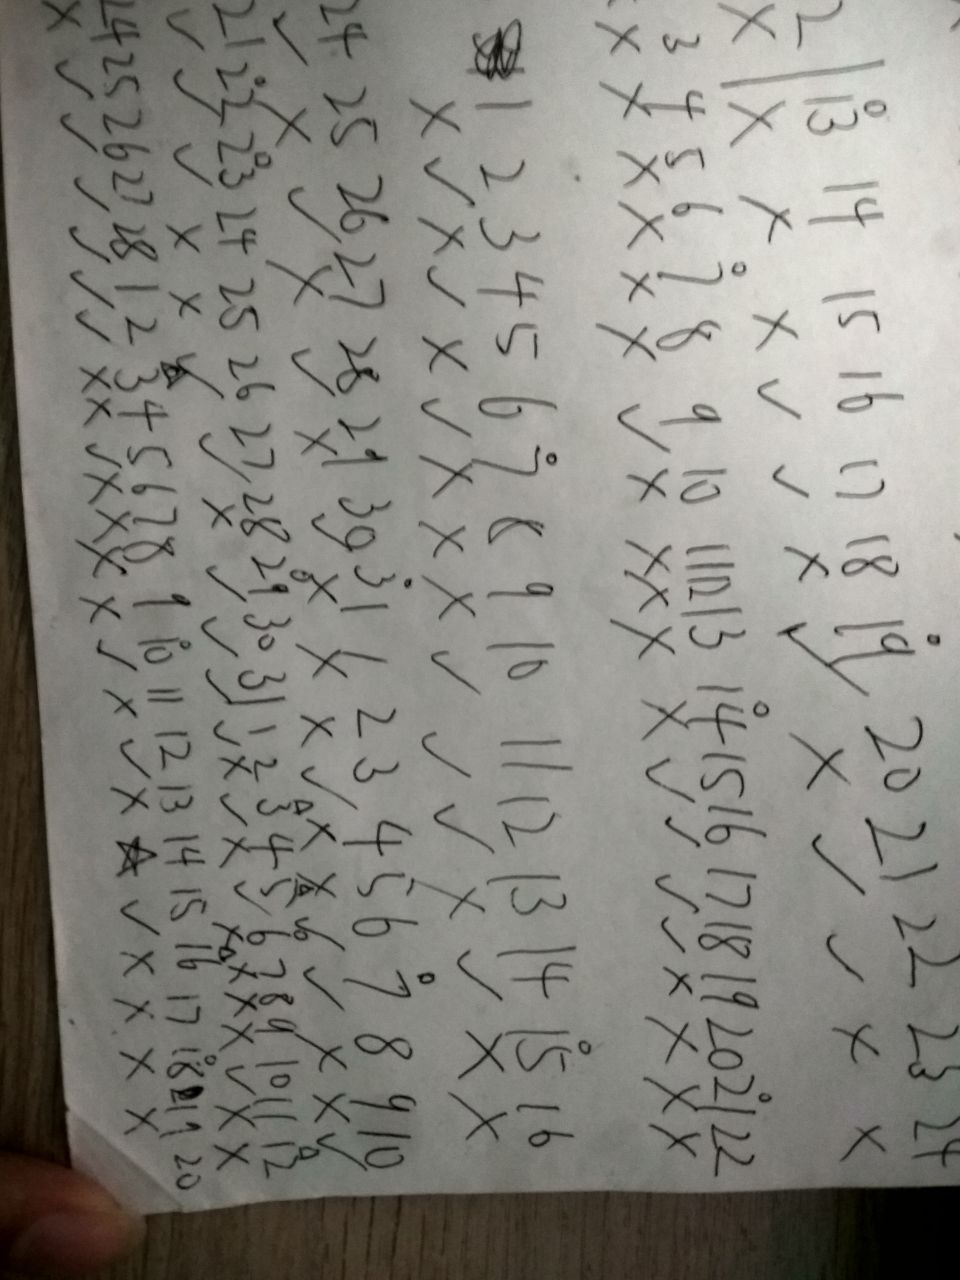 2 | 13 14 15 16 17 18 19 20 21 22 23 24
X X X X ✓ ✓ X ✓ X ✓ ✓ X X
3 4 5 6 7 8 9 10 11 12 13 14 15 16 17 18 19 20 21 22
X X X X X X ✓ X X X X X ✓ ✓ ✓ ✓ X X X X
1 2 3 4 5 6 7 8 9 10 11 12 13 14 15 16
X ✓ X ✓ X ✓ X X X ✓ ✓ ✓ X ✓ X X
24 25 26 27 28 29 30 31 1 2 3 4 5 6 7 8 9 10
✓ X ✓ X ✓ X ✓ X X X ✓ X X ✓ ✓ X X ✓
21 22 23 24 25 26 27 28 29 30 31 1 2 3 4 5 6 7 8 9 10 11 12
✓ ✓ ✓ X X ✓ ✓ X ✓ ✓ ✓ ✓ X ✓ X ✓ X X X X ✓ X X
24 25 26 27 28 1 2 3 4 5 6 7 8 9 10 11 12 13 14 15 16 17 18 19 20
X ✓ ✓ ✓ ✓ ✓ ✓ X X ✓ X X X X ✓ X ✓ X ☆ ✓ X X X X